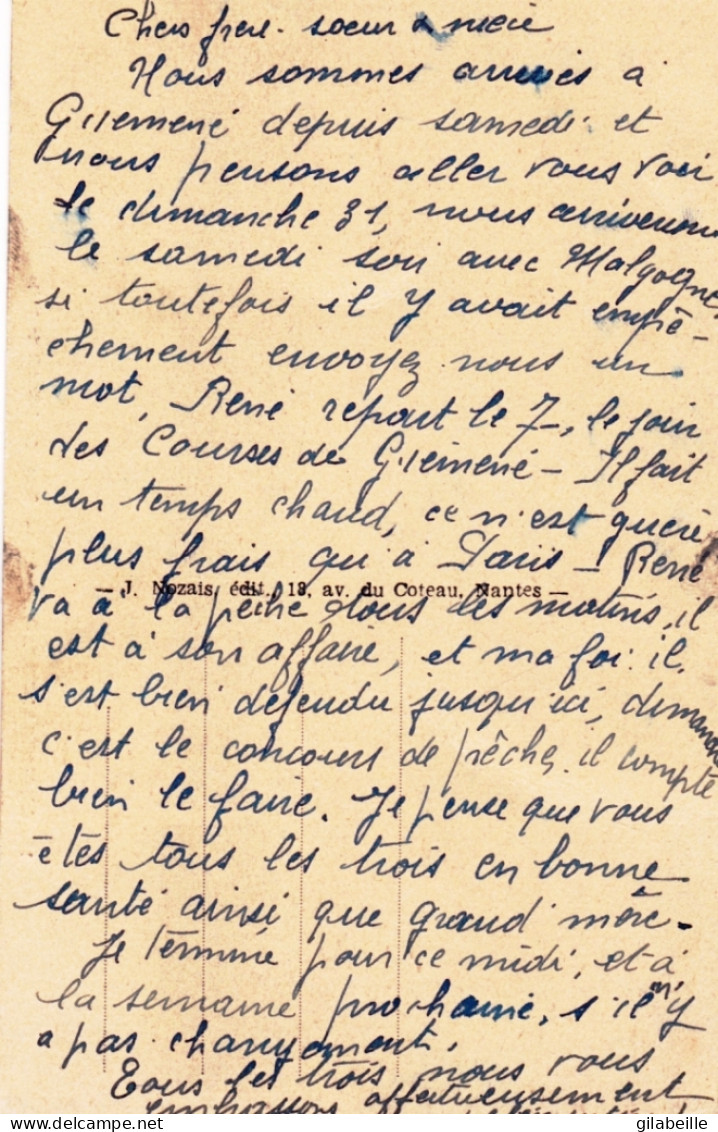 Chers frere. soeur & niece
Nous sommes arrivés à
Guemené depuis samedi et
nous pensons aller vous voir
le dimanche 31, nous arriverons
le samedi soir avec Malgogne,
si toutefois il y avait empê-
chement envoyez nous un
mot, René repart le 7-, le jour
des Courses de Guémené - Il fait
un temps chaud, ce n'est guère
plus frais qu'à Paris - René
— J. Nozais, édit., 18, av. du Coteau, Nantes —
va à la pêche tous les matins, il
est à son affaire, et ma foi il
s'est bien défendu jusqu'ici, dimanche
c'est le concours de pêche, il compte
bien le faire. Je pense que vous
êtes tous les trois en bonne
santé ainsi que grand'mère.
Je termine pour ce midi, et à
la semaine prochaine, s'il n'y
a pas changement.
Tous les trois nous vous
embrassons affectueusement
gilabeille